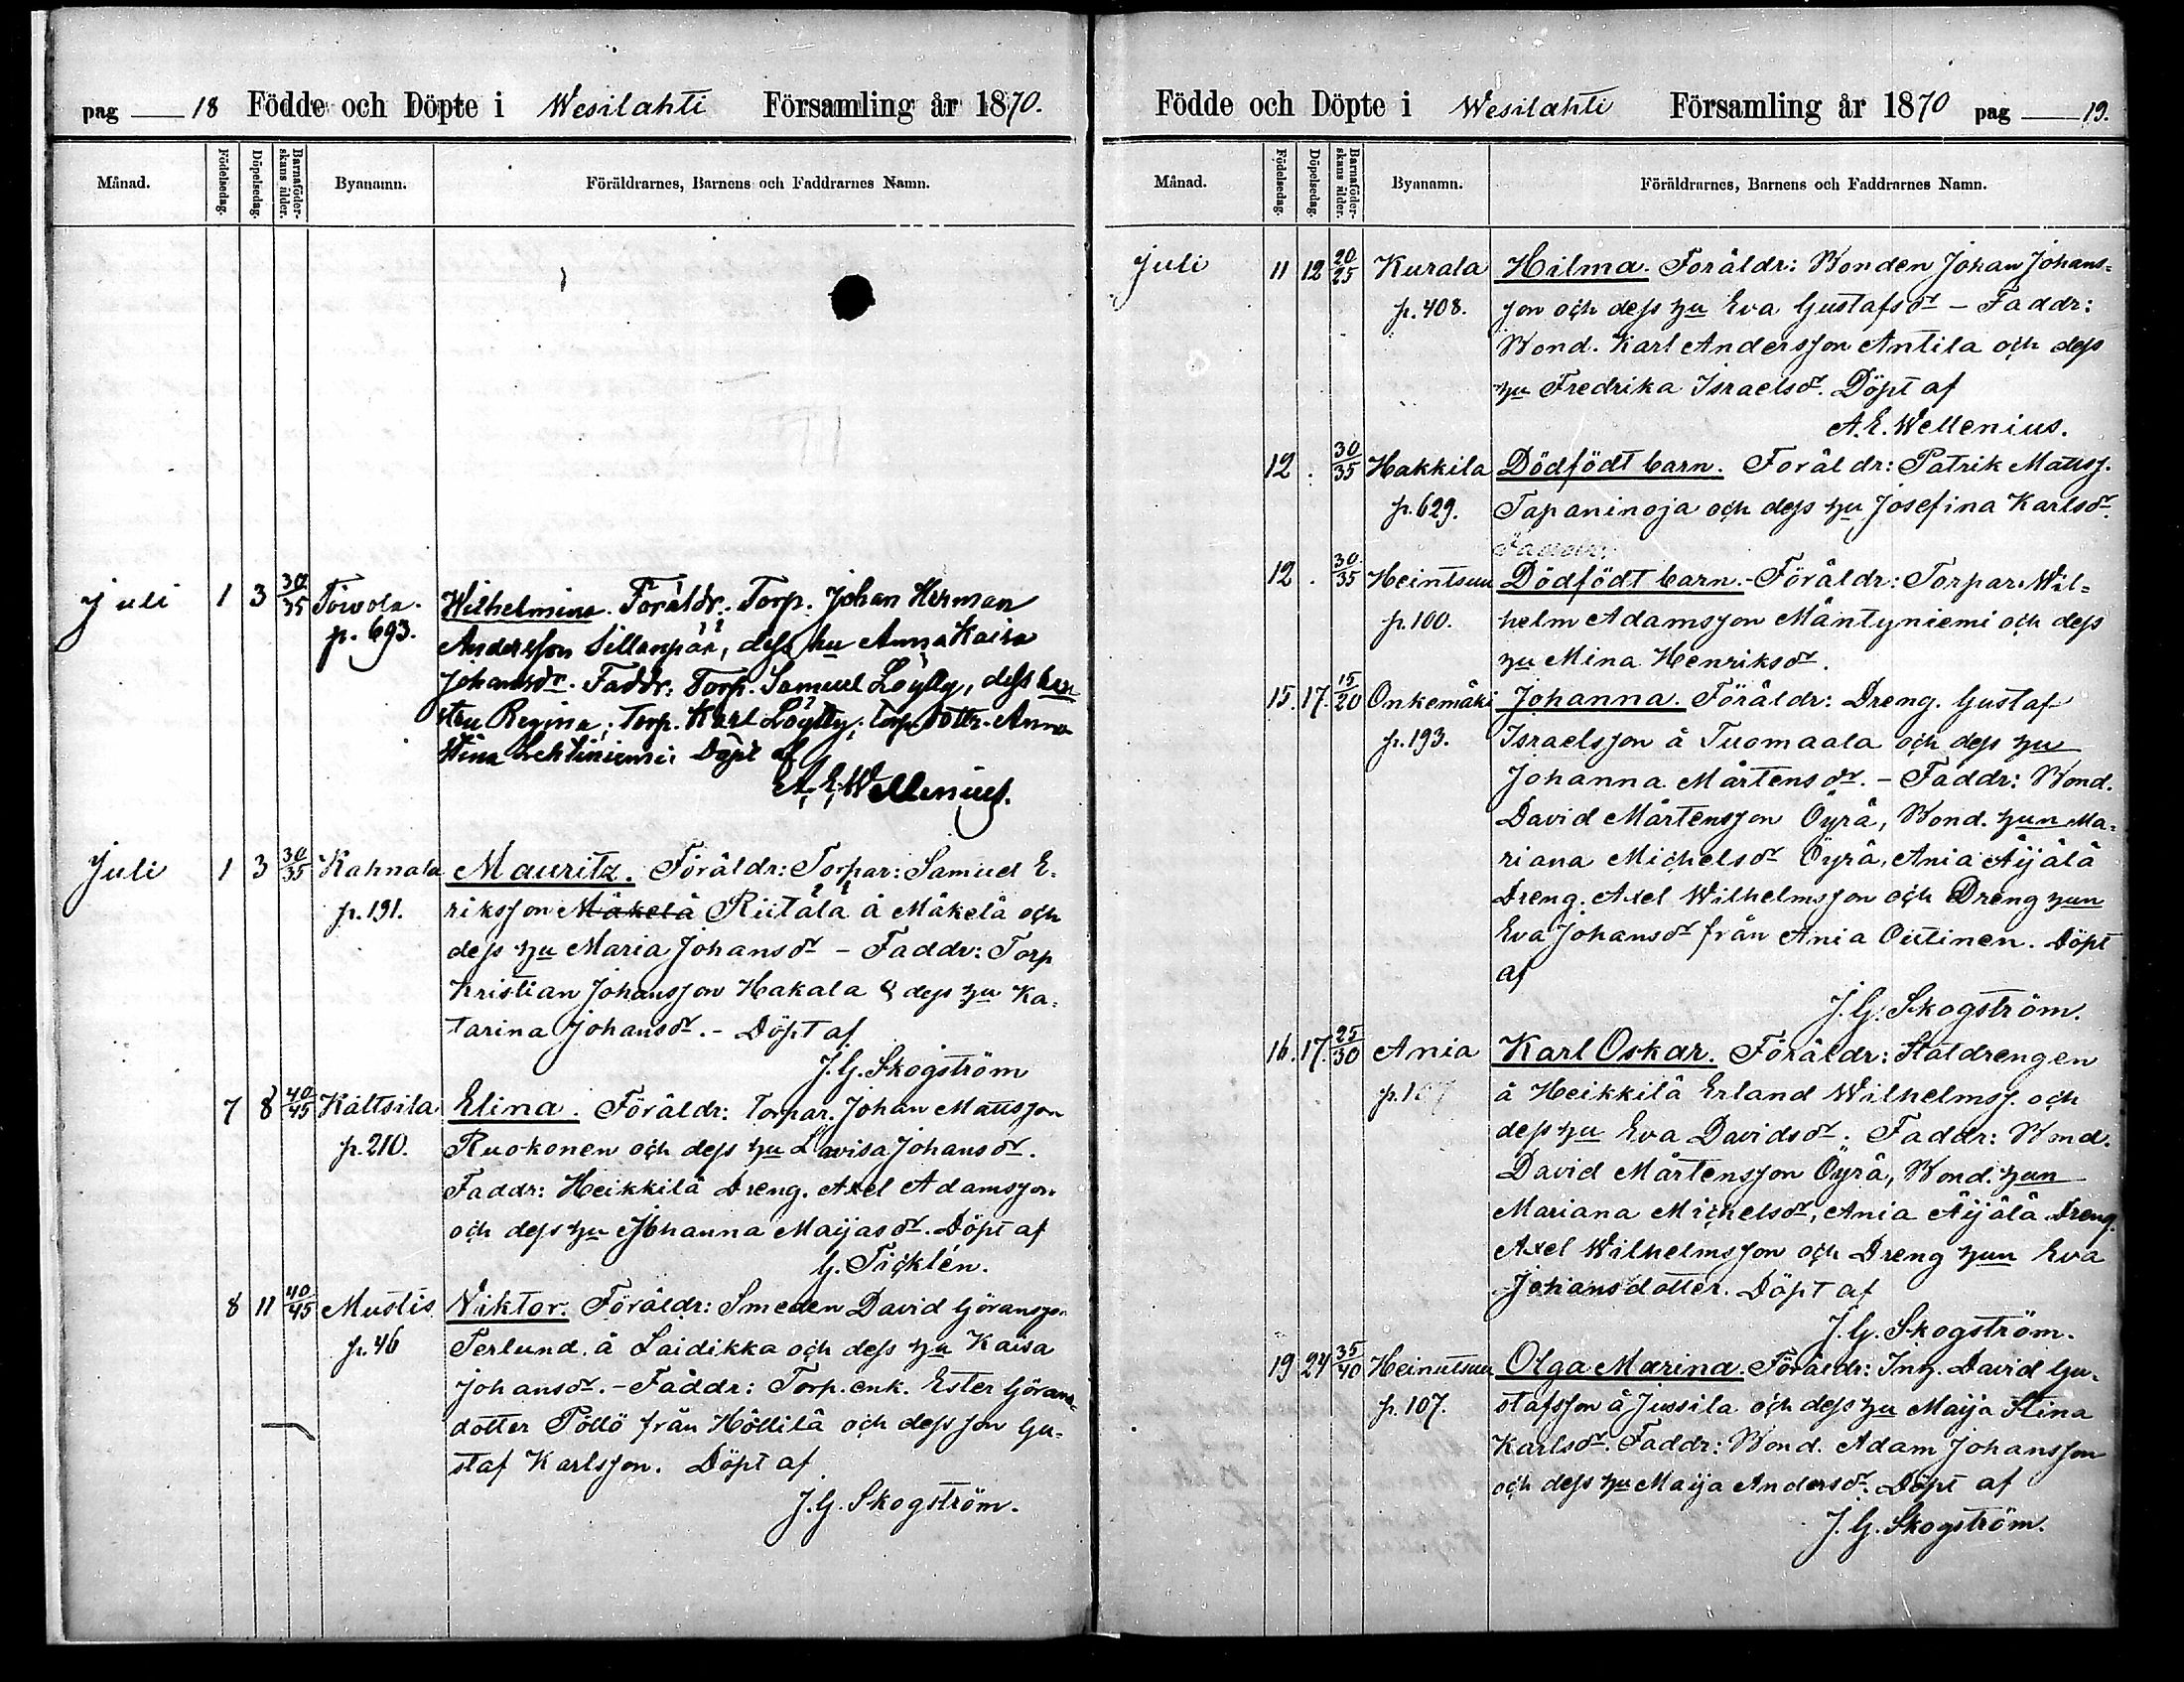 pag 18 Födde och Döpte i Wesilahti Församling år 1870.
Månad. Födelsedag. Döpelsedag. Barnaföderskans ålder. Bynamn. Föräldrarnes, Barnens och Faddrarnes Namn.
Juli 1 3 30/35 Toivola. Wilhelmina. Föräldr. Torp. Johan Herman
p. 693. Andersson Sillanpää, dess hu Anna Kaisa
Johansdr. Faddr: Torp. Samuel Löylly, dess hu
Regina; Torp. Karl Löylly; Torp dottr. Anna
Stina Lehtiniemi. Döpt af
A. E. Wellenius.
Juli 1 3 30/35 Kahnala Mauritz. Föräldr: Torpar: Samuel E-
p. 191. riksson Mäkelä Riitala å Mäkelä och
dess hu Maria Johansdr – Faddr: Torp
Kristian Johansson Hakala & dess hu Ka-
tarina Johansdr. – Döpt af
J. G. Skogström
7 8 40/45 Kaltsila Elina. Föräldr: Torpar. Johan Mattsson
p. 210. Ruokonen och dess hu Lovisa Johansdr.
Faddr: Heikkilä Dreng. Axel Adamsson
och dess hu Johanna Maijasdr. Döpt af
G. Ticklén.
8 11 40/45 Mustis Viktor. Föräldr: Smeden David Göransson
p. 46 Terlund å Laidikka och dess hu Kaisa
Johansdr. – Faddr: Torp. enk. Ester Görans-
dotter Pöllö från Höllilä och dess son Gu-
staf Karlsson. Döpt af
J. G. Skogström.
Födde och Döpte i Wesilahti Församling år 1870 pag 19.
Månad. Födelsedag. Döpelsedag. Barnaföderskans ålder. Bynamn. Föräldrarnes, Barnens och Faddrarnes Namn.
Juli 11 12 20/25 Kurala Hilma. Föräldr: Bonden Johan Johans-
p. 408. son och dess hu Eva Gustafsdr – Faddr:
Bond. Karl Andersson Antila och dess
hu Fredrika Israelsdr. Döpt af
A. E. Wellenius.
12 . 30/35 Hakkila Dödfödt barn. Föräldr: Patrik Matts.
p. 629. Tapaninoja och dess hu Josefina Karlsdr.
Faddr:
12 . 30/35 Heintsuu Dödfödt barn. – Föräldr: Torpar. Wil-
p. 100. helm Adamsson Mäntyniemi och dess
hu Mina Henriksdr.
15. 17. 15/20 Onkemäki Johanna. Föräldr: Dreng. Gustaf
p. 193. Israelsson å Tuomaala och dess hu
Johanna Mårtensdr. – Faddr: Bond.
David Mårtensson Öyrä, Bond. hun Ma-
riana Michelsdr Öyrä, Ania Äijälä
Dreng. Axel Wilhelmsson och Dreng hun
Eva Johansdr från Ania Outinen. Döpt
af
J. G. Skogström.
16. 17. 25/30 Ania Karl Oskar. Föräldr: Staldrengen
p. 107 å Heikkilä Erland Wilhelmss. och
dess hu Eva Davidsdr. Faddr: Bond.
David Mårtensson Öyrä, Bond. hun
Mariana Michelsdr, Ania Äijälä Dreng.
Axel Wilhelmsson och Dreng hun Eva
Johansdotter. Döpt af
J. G. Skogström.
19 24 35/40 Heinutsuu Olga Marina. Föräldr: Inh. David Gu-
p. 107. stafsson å Jussila och dess hu Maija Stina
Karlsdr. Faddr: Bond. Adam Johansson
och dess hu Maija Andersdr. Döpt af
J. G. Skogström.